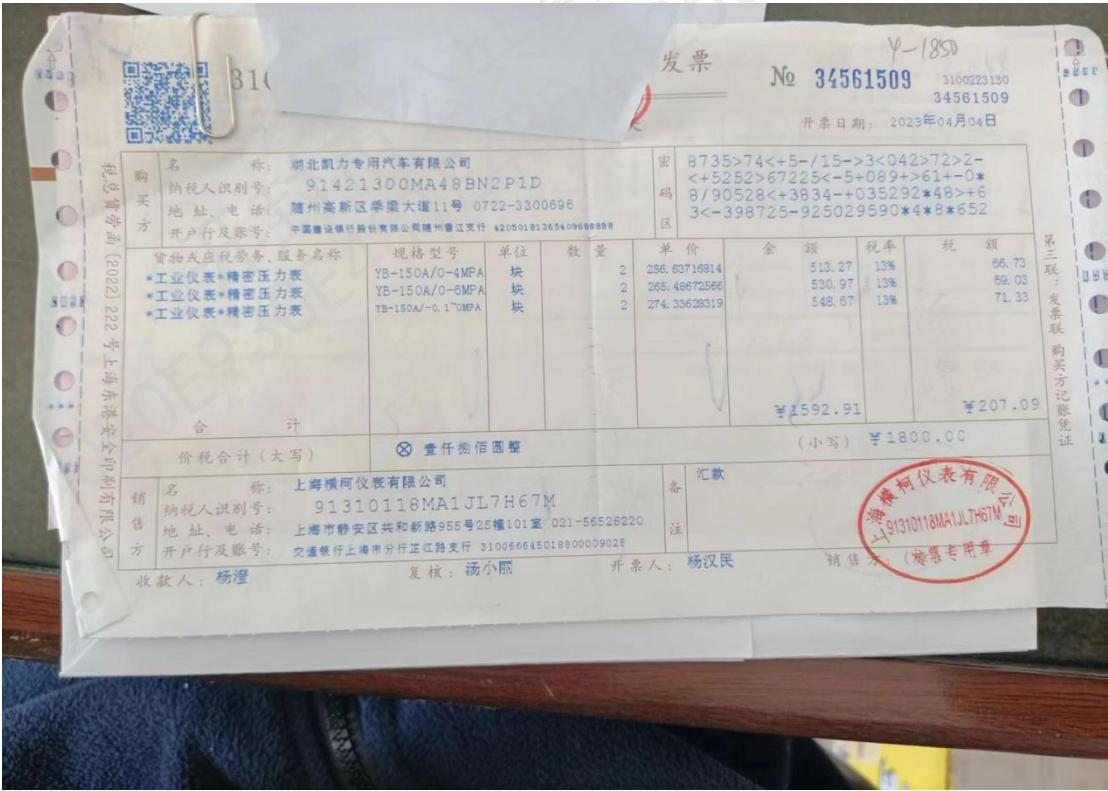 310
发票
Y-1850
№ 34561509
3100223130
34561509
开票日期: 2023年04月04日
购买方
名 称: 湖北凯力专用汽车有限公司
纳税人识别号: 91421300MA48BN2P1D
地 址、电 话: 随州高新区季梁大道11号 0722-3300696
开户行及账号: 中国建设银行股份有限公司随州香江支行 42050181365409688888
密码区
8735>74<+5-/15->3<042>72>2-
<+5252>67225<-5+089+>61+-0*
8/90528<+3834-+035292*48>+6
3<-398725-925029590*4*8*652
货物或应税劳务、服务名称 规格型号 单位 数 量 单 价 金 额 税率 税 额
*工业仪表*精密压力表 YB-150A/0-4MPA 块 2 256.63716814 513.27 13% 66.73
*工业仪表*精密压力表 YB-150A/0-6MPA 块 2 265.48672566 530.97 13% 69.03
*工业仪表*精密压力表 YB-150A/-0.1~0MPA 块 2 274.33628319 548.67 13% 71.33
合 计 ¥1592.91 ¥207.09
价税合计(大写) ⊗ 壹仟捌佰圆整 (小写) ¥1800.00
销售方
名 称: 上海横柯仪表有限公司
纳税人识别号: 91310118MA1JL7H67M
地 址、电 话: 上海市静安区共和新路955号25幢101室 021-56526220
开户行及账号: 交通银行上海市分行芷江路支行 310066645018800009025
备注
汇款
收款人: 杨澄 复核: 汤小丽 开票人: 杨汉民 销售方: (章)
上海横柯仪表有限公司
91310118MA1JL7H67M
发票专用章
税总货劳函[2022]222号上海东港安全印刷有限公司
第三联:发票联 购买方记账凭证